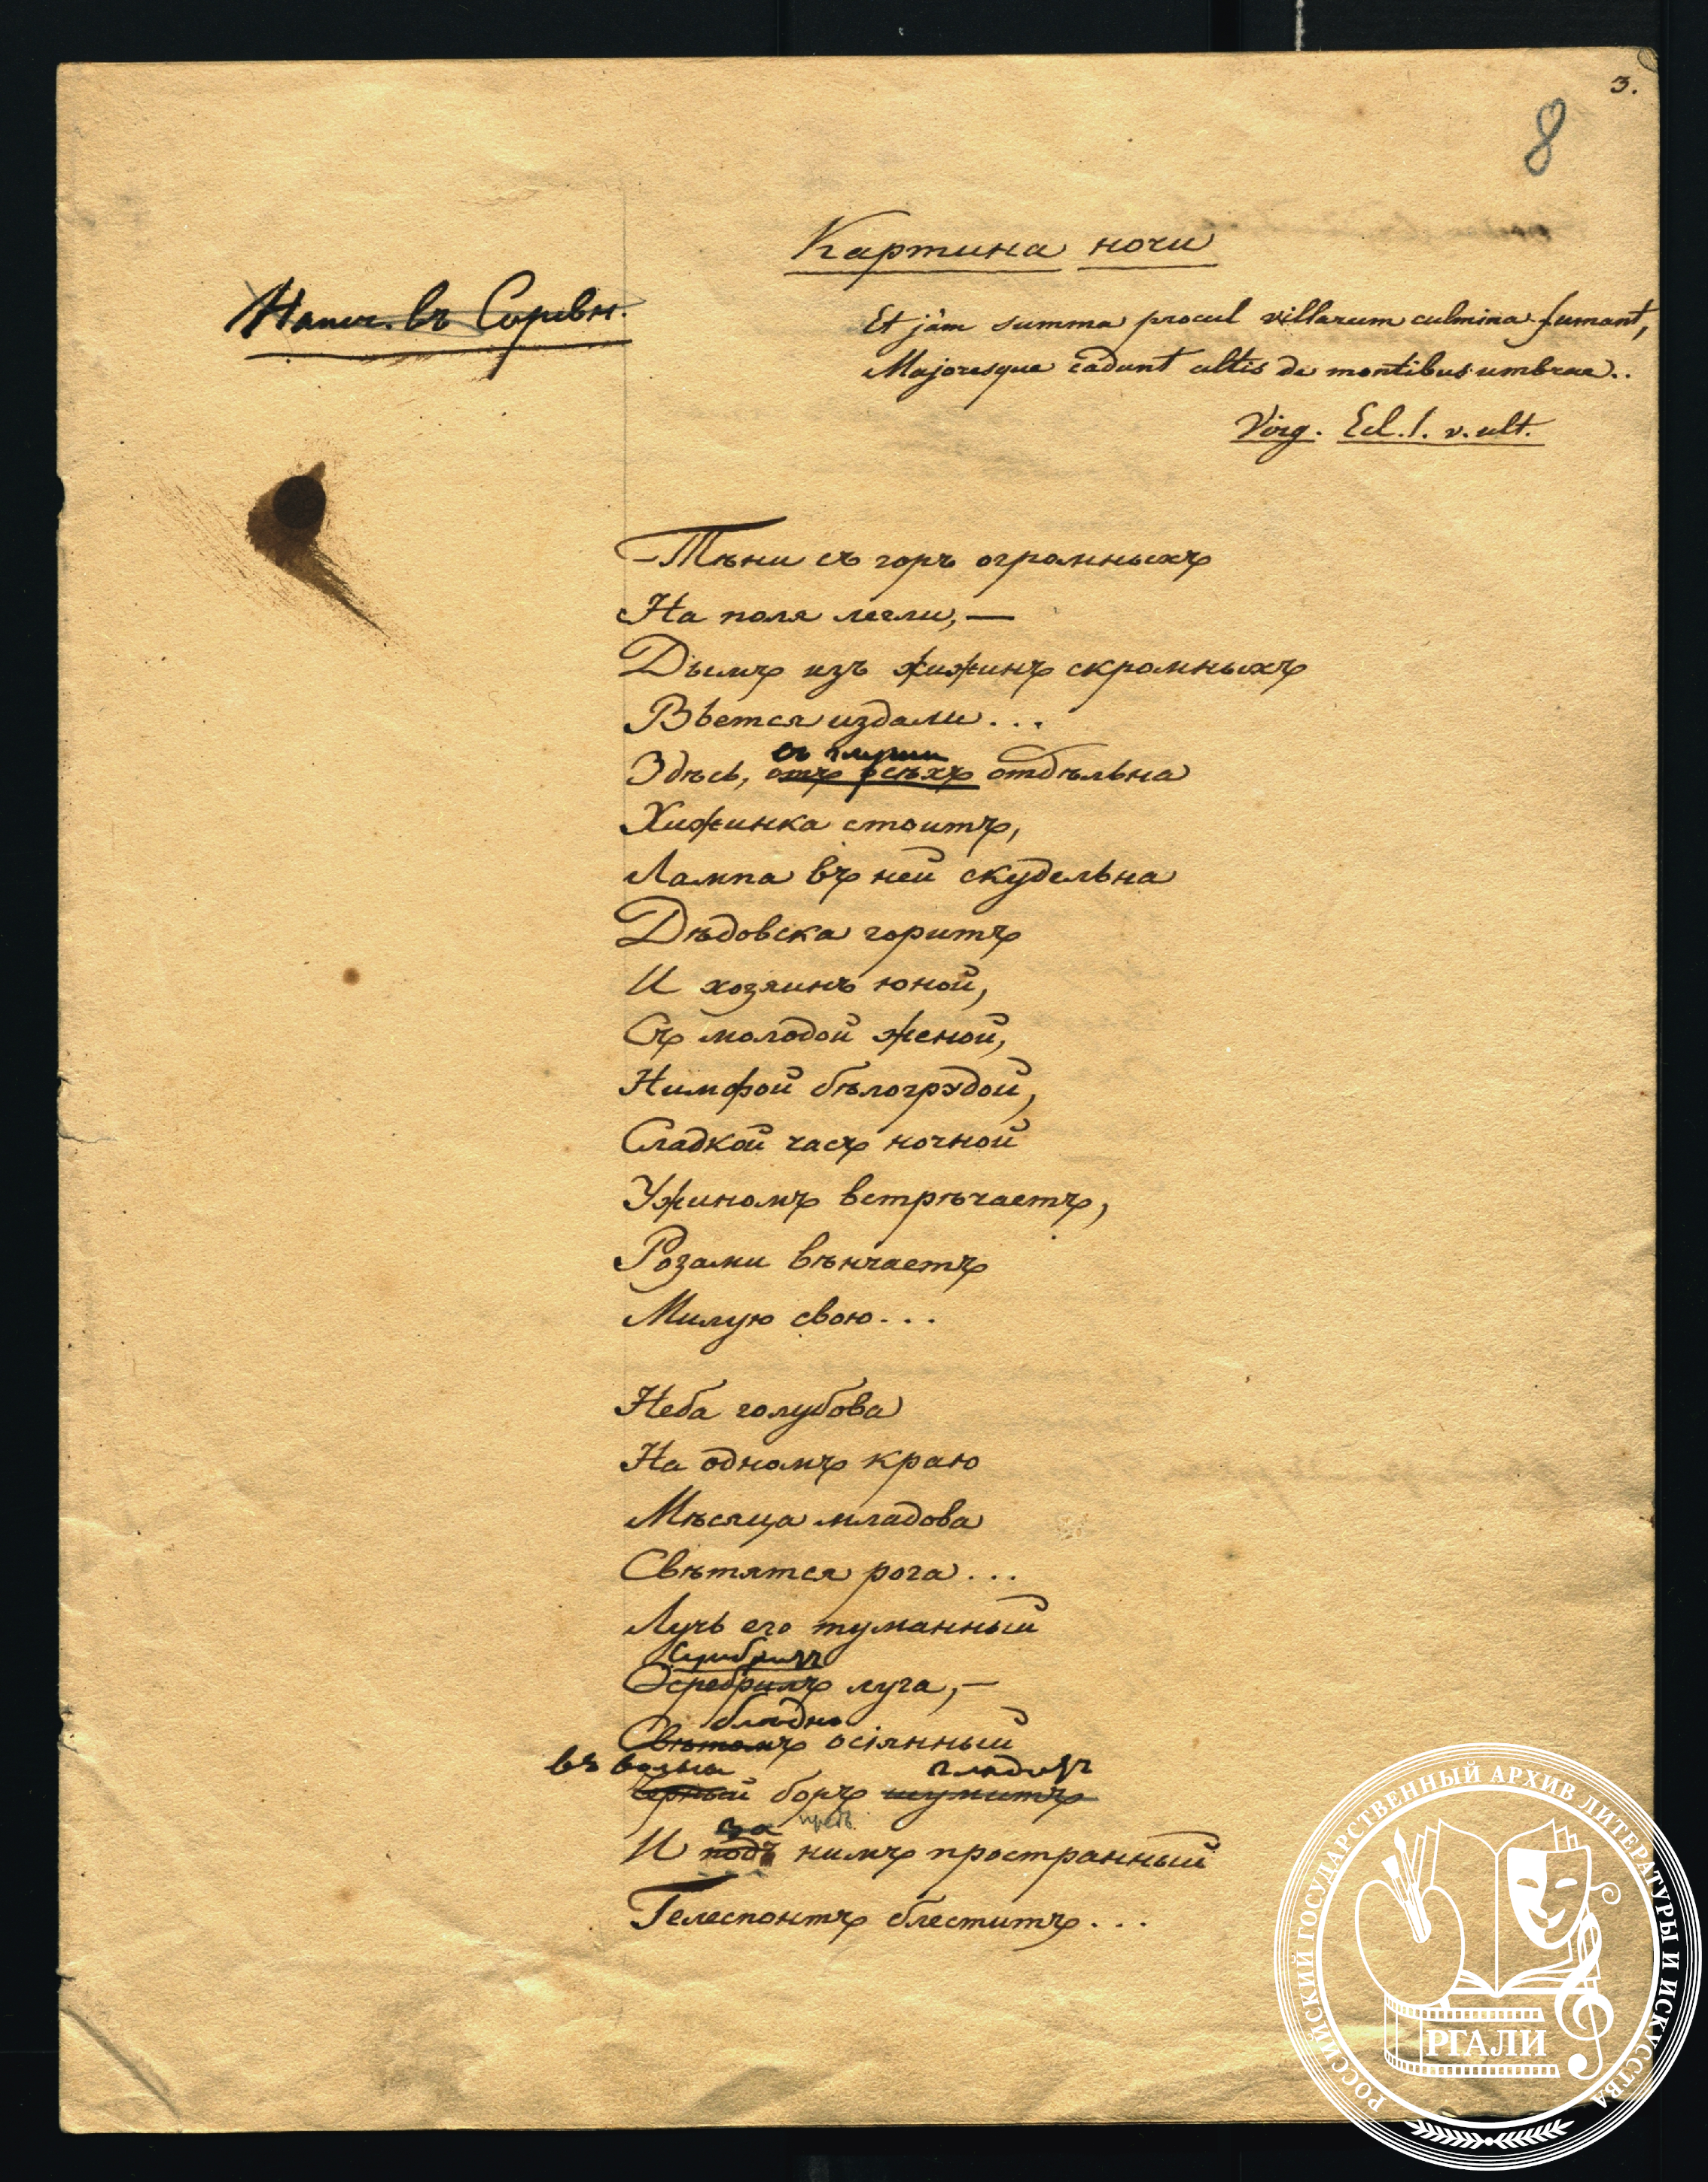 3.
8
Картина ночи
Напеч. въ Соревн.
Et jàm summa procul villarum culmina fumant,
Majoresque cadunt altis de montibus umbrae..
Virg. Ecl. I. v. ult.
Тѣни съ горъ огромныхъ
На поля легли, —
Дымъ изъ хижинъ скромныхъ
Вьется издали...
въ глуши
Здѣсь, отъ всѣхъ отдѣльна
Хижинка стоитъ,
Лампа въ ней скудельна
Дѣдовска горитъ
И хозяинъ юной,
Съ молодой женой,
Нимфой бѣлогрудой,
Сладкой часъ ночной
Ужиномъ встрѣчаетъ,
Розами вѣнчаетъ
Милую свою...
Неба голубова
На одномъ краю
Мѣсяца младова
Свѣтятся рога...
Лучь его туманный
Серебритъ
Осребрилъ луга, —
блѣдно
Свѣтомъ осіянный
въ волны глядитъ
Черный боръ шумитъ
за предъ
И подъ нимъ пространный
Гелеспонтъ блеститъ...
РОССИЙСКИЙ ГОСУДАРСТВЕННЫЙ АРХИВ ЛИТЕРАТУРЫ И ИСКУССТВА
РГАЛИ